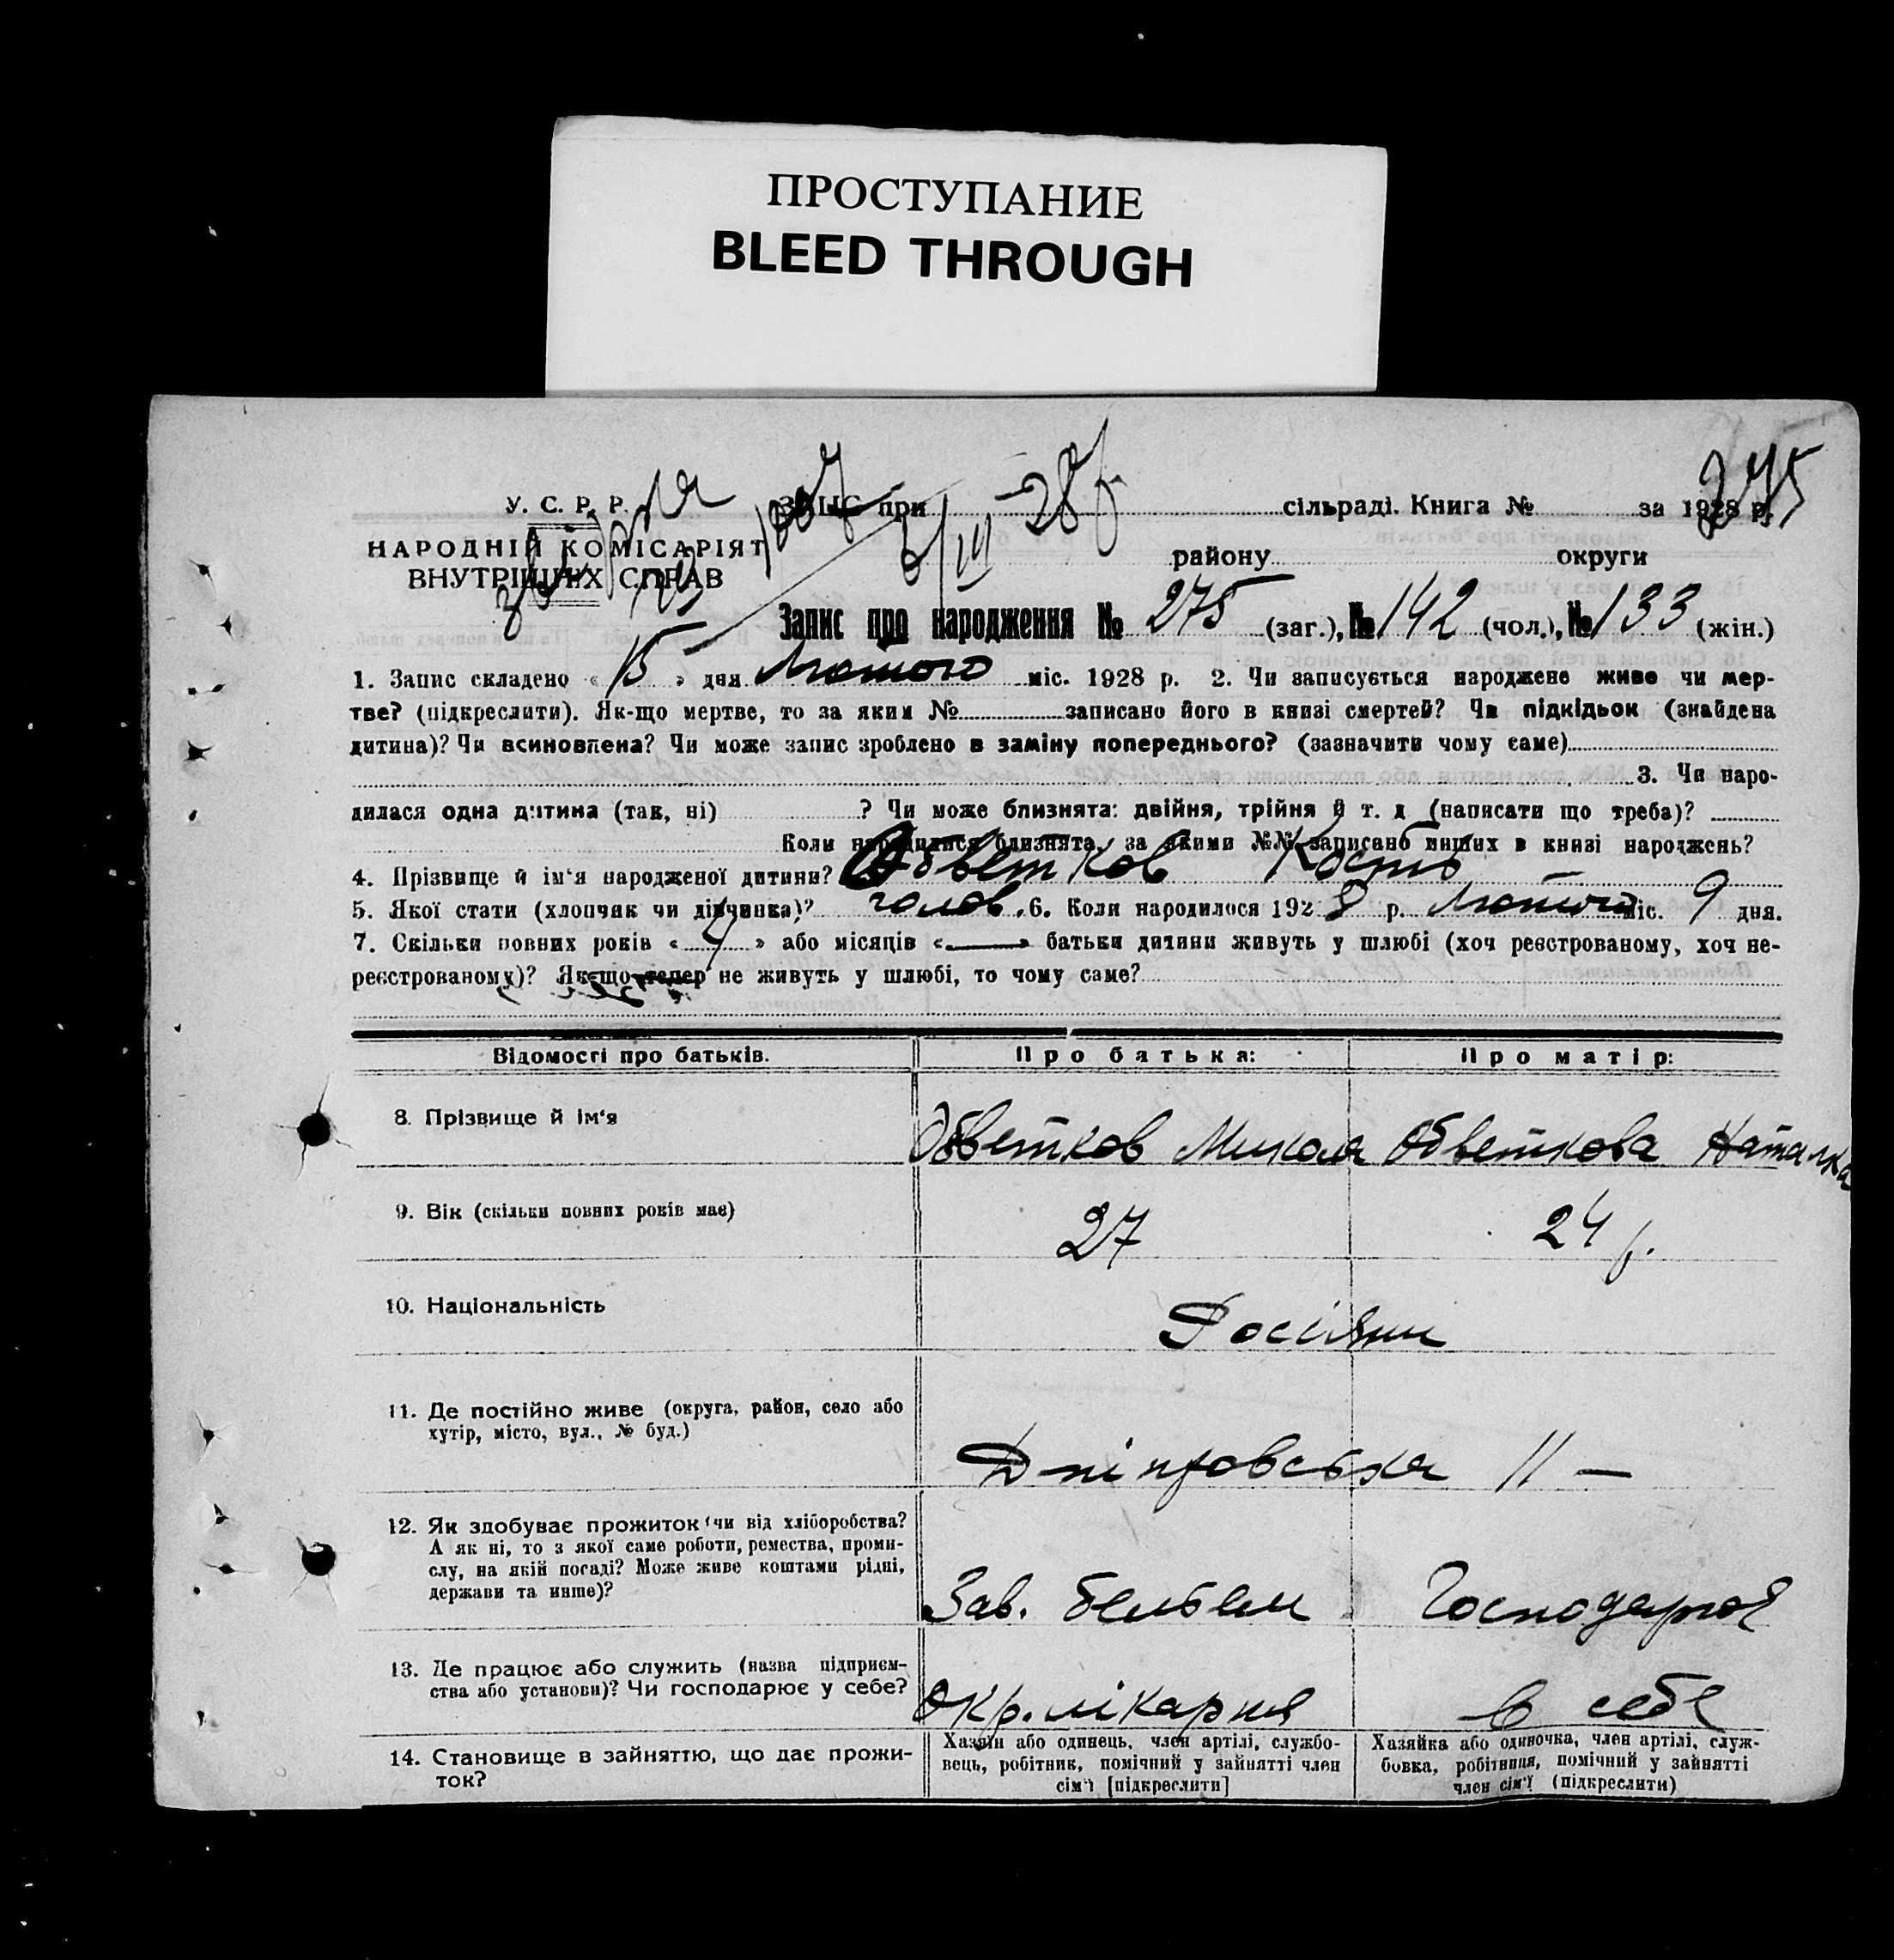 ПРОСТУПАНИЕ
BLEED THROUGH
275
У. С. Р. Р. ЗАГС при сільраді. Книга № за 1928 р.
НАРОДНІЙ КОМІСАРІЯТ району округи
ВНУТРІШНІХ СПРАВ
Запис про народження № 275 (заг.), № 142 (чол.), № 133 (жін.)
1. Запис складено « 15 » дня Лютого міс. 1928 р. 2. Чи записується народжене живе чи мер-
тве? (підкреслити). Як-що мертве, то за яким № записано його в книзі смертей? Чи підкідьок (знайдена
дитина)? Чи всиновлена? Чи може запис зроблено в заміну попереднього? (зазначити чому саме)
3. Чи наро-
дилася одна дитина (так, ні) ? Чи може близнята: двійня, трійня й т. д (написати що треба)?
Коли народилися близнята, за якими №№ записано инших в книзі народжень?
4. Прізвище й ім'я народженої дитини? Обветков Кость
5. Якої стати (хлопчяк чи дівчинка)? чолов. 6. Коли народилося 1928 р. Лютого міс. 9 дня.
7. Скільки повних років « 4 » або місяців « — » батьки дитини живуть у шлюбі (хоч реєстрованому, хоч не-
реєстрованому)? Як-що тепер не живуть у шлюбі, то чому саме?
Відомості про батьків. Про батька: Про матір:
8. Прізвище й ім'я Обветков Микола Обветкова Наталка
9. Вік (скільки повних років має) 27 24 р.
10. Національність Росіяни
11. Де постійно живе (округа, район, село або
хутір, місто, вул., № буд.) Дніпровська 11 —
12. Як здобуває прожиток (чи від хліборобства?
А як ні, то з якої саме роботи, ремества, проми-
слу, на якій посаді? Може живе коштами рідні,
держави та инше)? Зав. Господарює
13. Де працює або служить (назва підприєм-
ства або установи)? Чи господарює у себе? Окр. лікарня в себе
14. Становище в зайняттю, що дає прожи-
ток?
Хазяїн або одинець, член артілі, службо-
вець, робітник, помічний у зайнятті член
сім'ї [підкреслити]
Хазяйка або одиночка, член артілі, служ-
бовка, робітниця, помічний у зайнятті
член сім'ї (підкреслити)